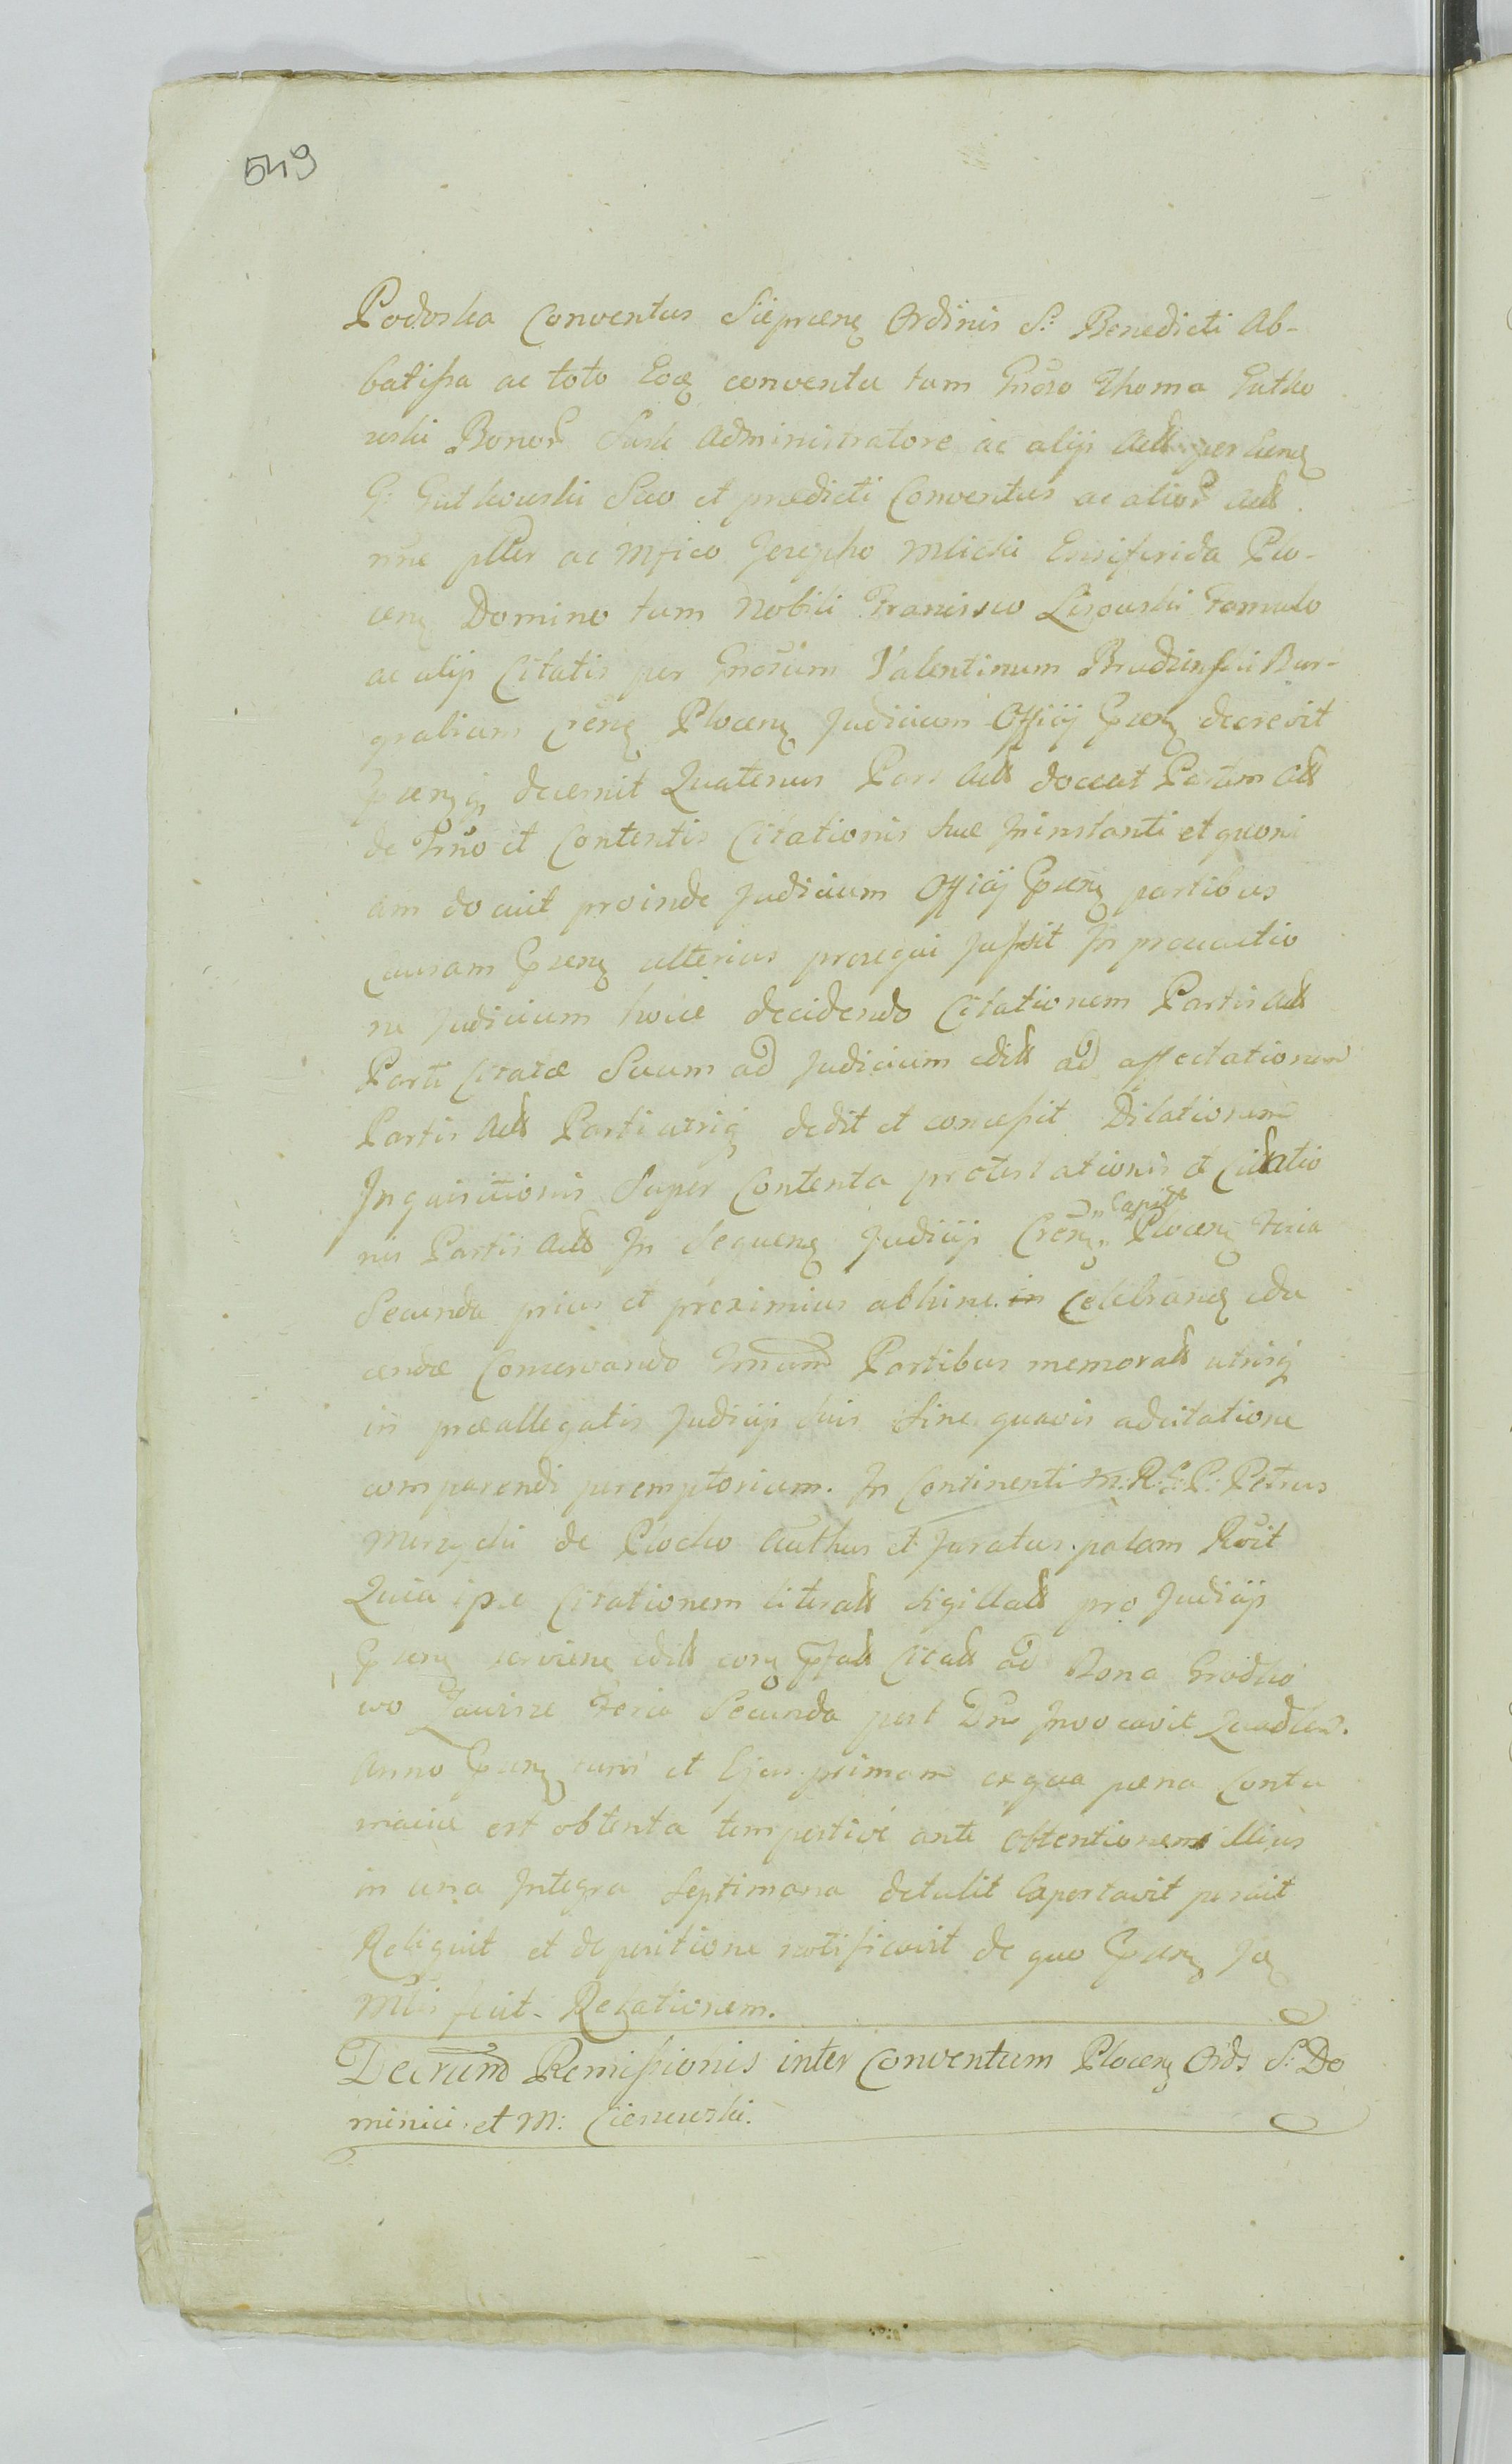 549
Podoska Conventus Sieprcen Ordinis S: Benedicti Ab-
batissa ac toto Eoq conventu tam Gnoso Thoma Gutko
wski Bonor Administratore ac alijs Acts per
G: Gutkowski Suo et prædicti Conventus ac alior Acts
nne ac Mfico Josepho Mlicki Ensiferida Plo-
cen Domino tum Nobili Francisco Lisowski Famulo
ac alijs Citatis per Gnosum Valentinum Brudzinski Bur-
grabium Cren Plocen Judicium Officij Pæn decrevit
decernit Quatenus Pars Acts doceat Partem Acts
de Trno et Contentis Citationis suæ Ininstanti et quoni
am docuit proinde Judicium Officij Pæn partibus
Causam Pæn ulterius prosequi Jussit In prosecutio
ne Judicium hocce decidendo Citationem Partis Acts
Parti Citatæ Suum ad Judicium edits ad affectationem
Partis Acts Parti utriq dedit et concessit Dilationem
Inquisitionis Super Contenta protestationis et Citatio
nis Partis Acts In Sequen Judicijs Cren Capits Plocen Feria
Secunda prius et proximius abhinc in Celebran edu
cendæ Conservando Trnum Partibus memorats utrisq
in præallegatis Judicijs suis Sine quavis adcitatione
comparendi peremptorium. In Continenti M:R:P: Petrus
Murzycki de Plocko Authus et Juratus palam Rvit
Quia ipse Citationem literats sigillats pro Judicijs
Pæn servien edits Citats ad Bona Grodko
wo Zawisze Feria Secunda post Dn Invocavit Quadlem.
Anno Pæn curri et Ejus primam ex qua pæna Contu
maciæ est obtenta tempestive ante obtentionem illius
in una Integra Septimana detulit Exportavit posuit
Reliquit et de positione notificavit de quo Pæn
fecit Relationem.
Decrum Remissionis inter Conventum Plocen Ords S: Do
minici et M: Ciesewski.